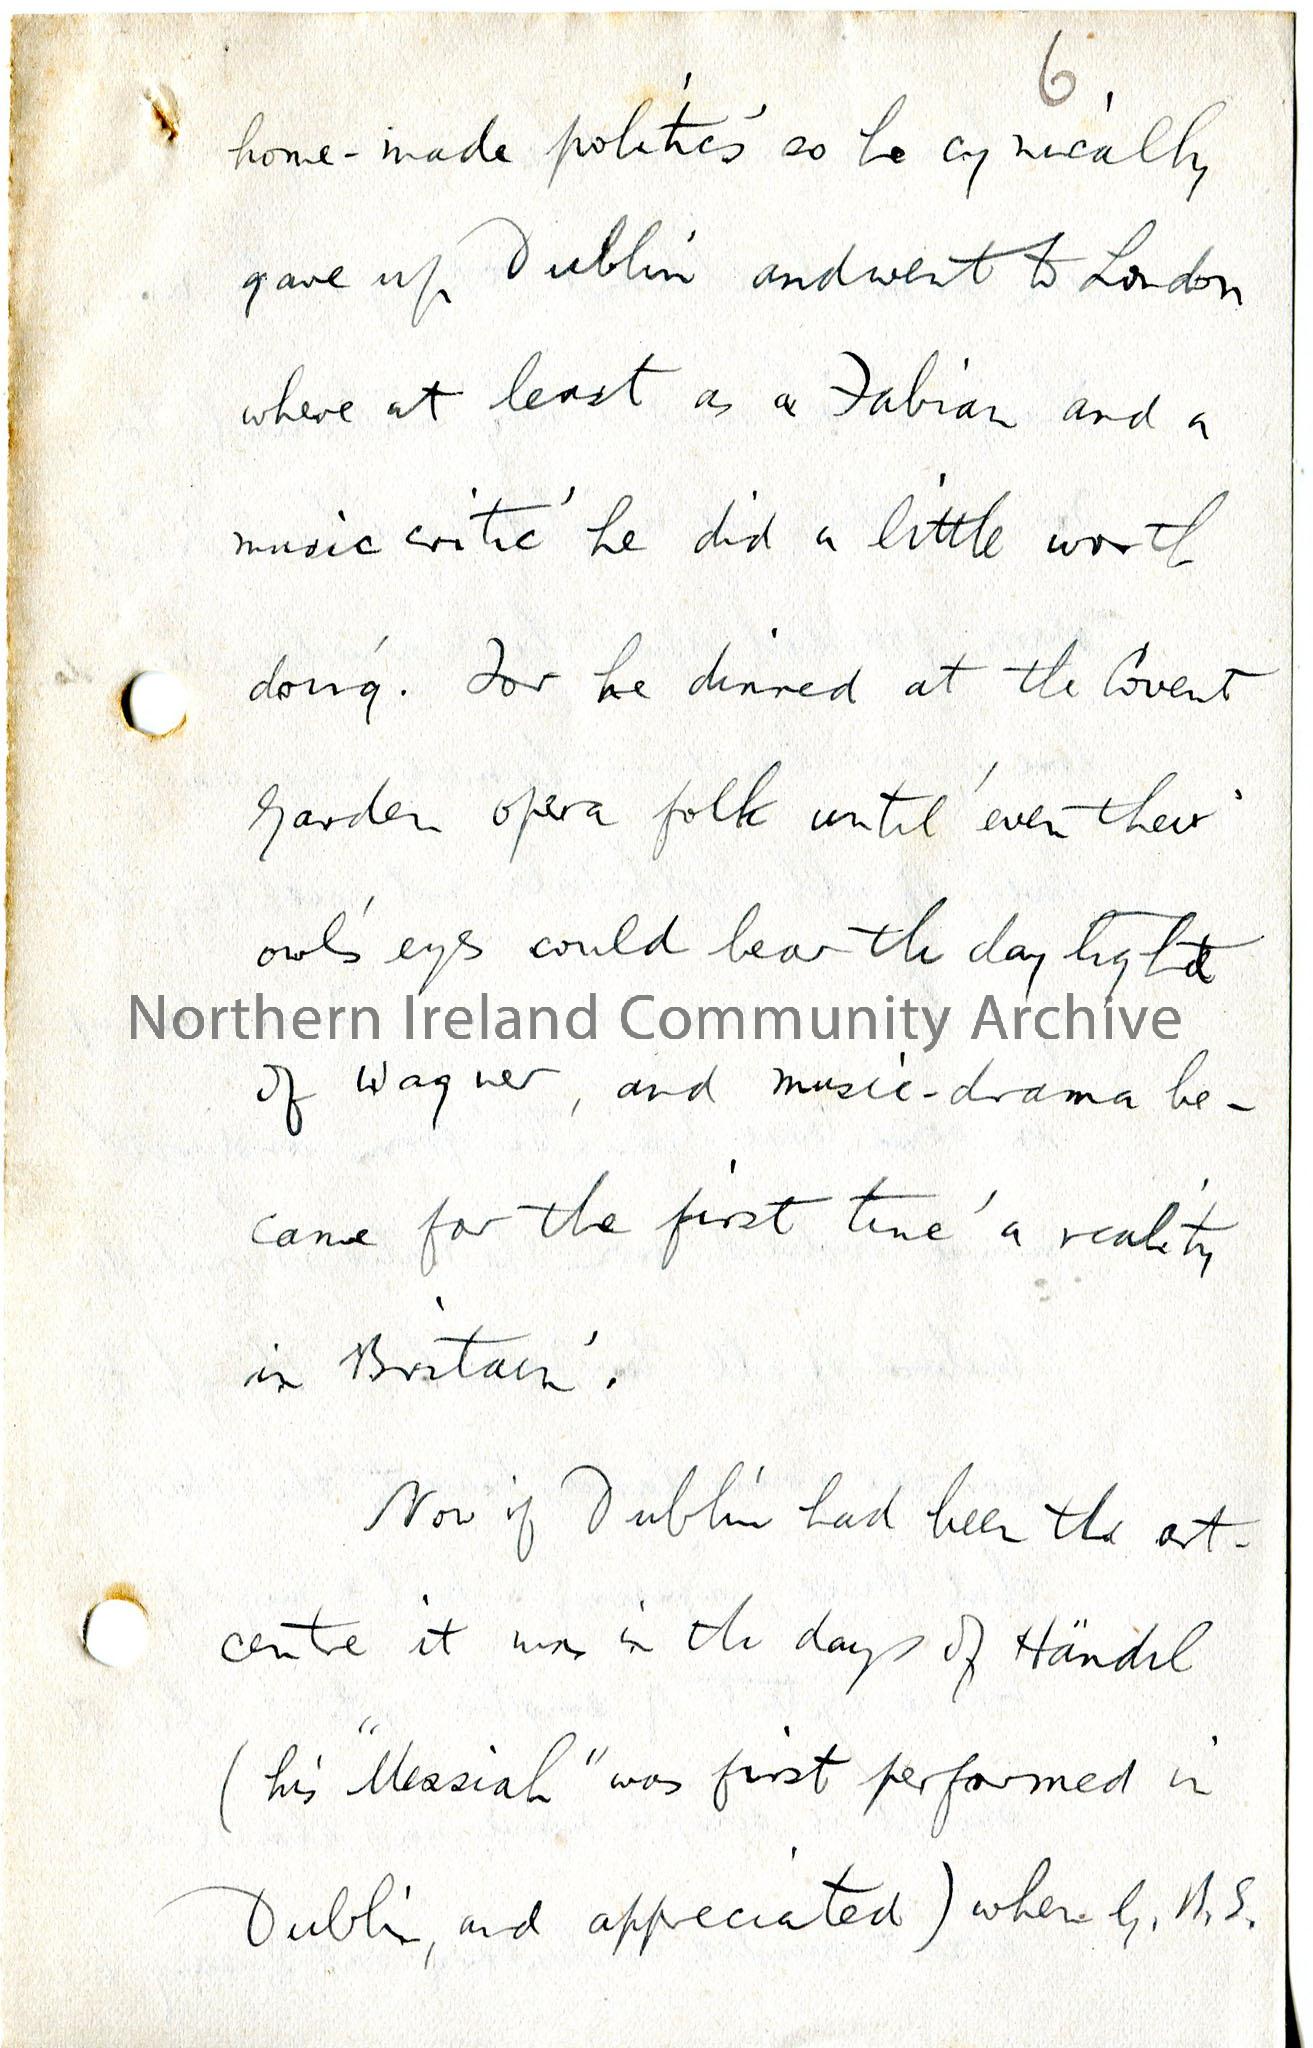 6
home-made politics so he cynically
gave up Dublin and went to London
where at least as a Fabian and a
music critic he did a little worth
doing. For he dinned at the Covent
Garden opera folk until even their
owl's eyes could bear the day light
Northern Ireland Community Archive
of Wagner, and music-drama be-
came for the first time a reality
in Britain.
Now if Dublin had been the art-
centre it was in the days of Händel
(his "Messiah" was first performed in
Dublin, and appreciated) when G. B. S.